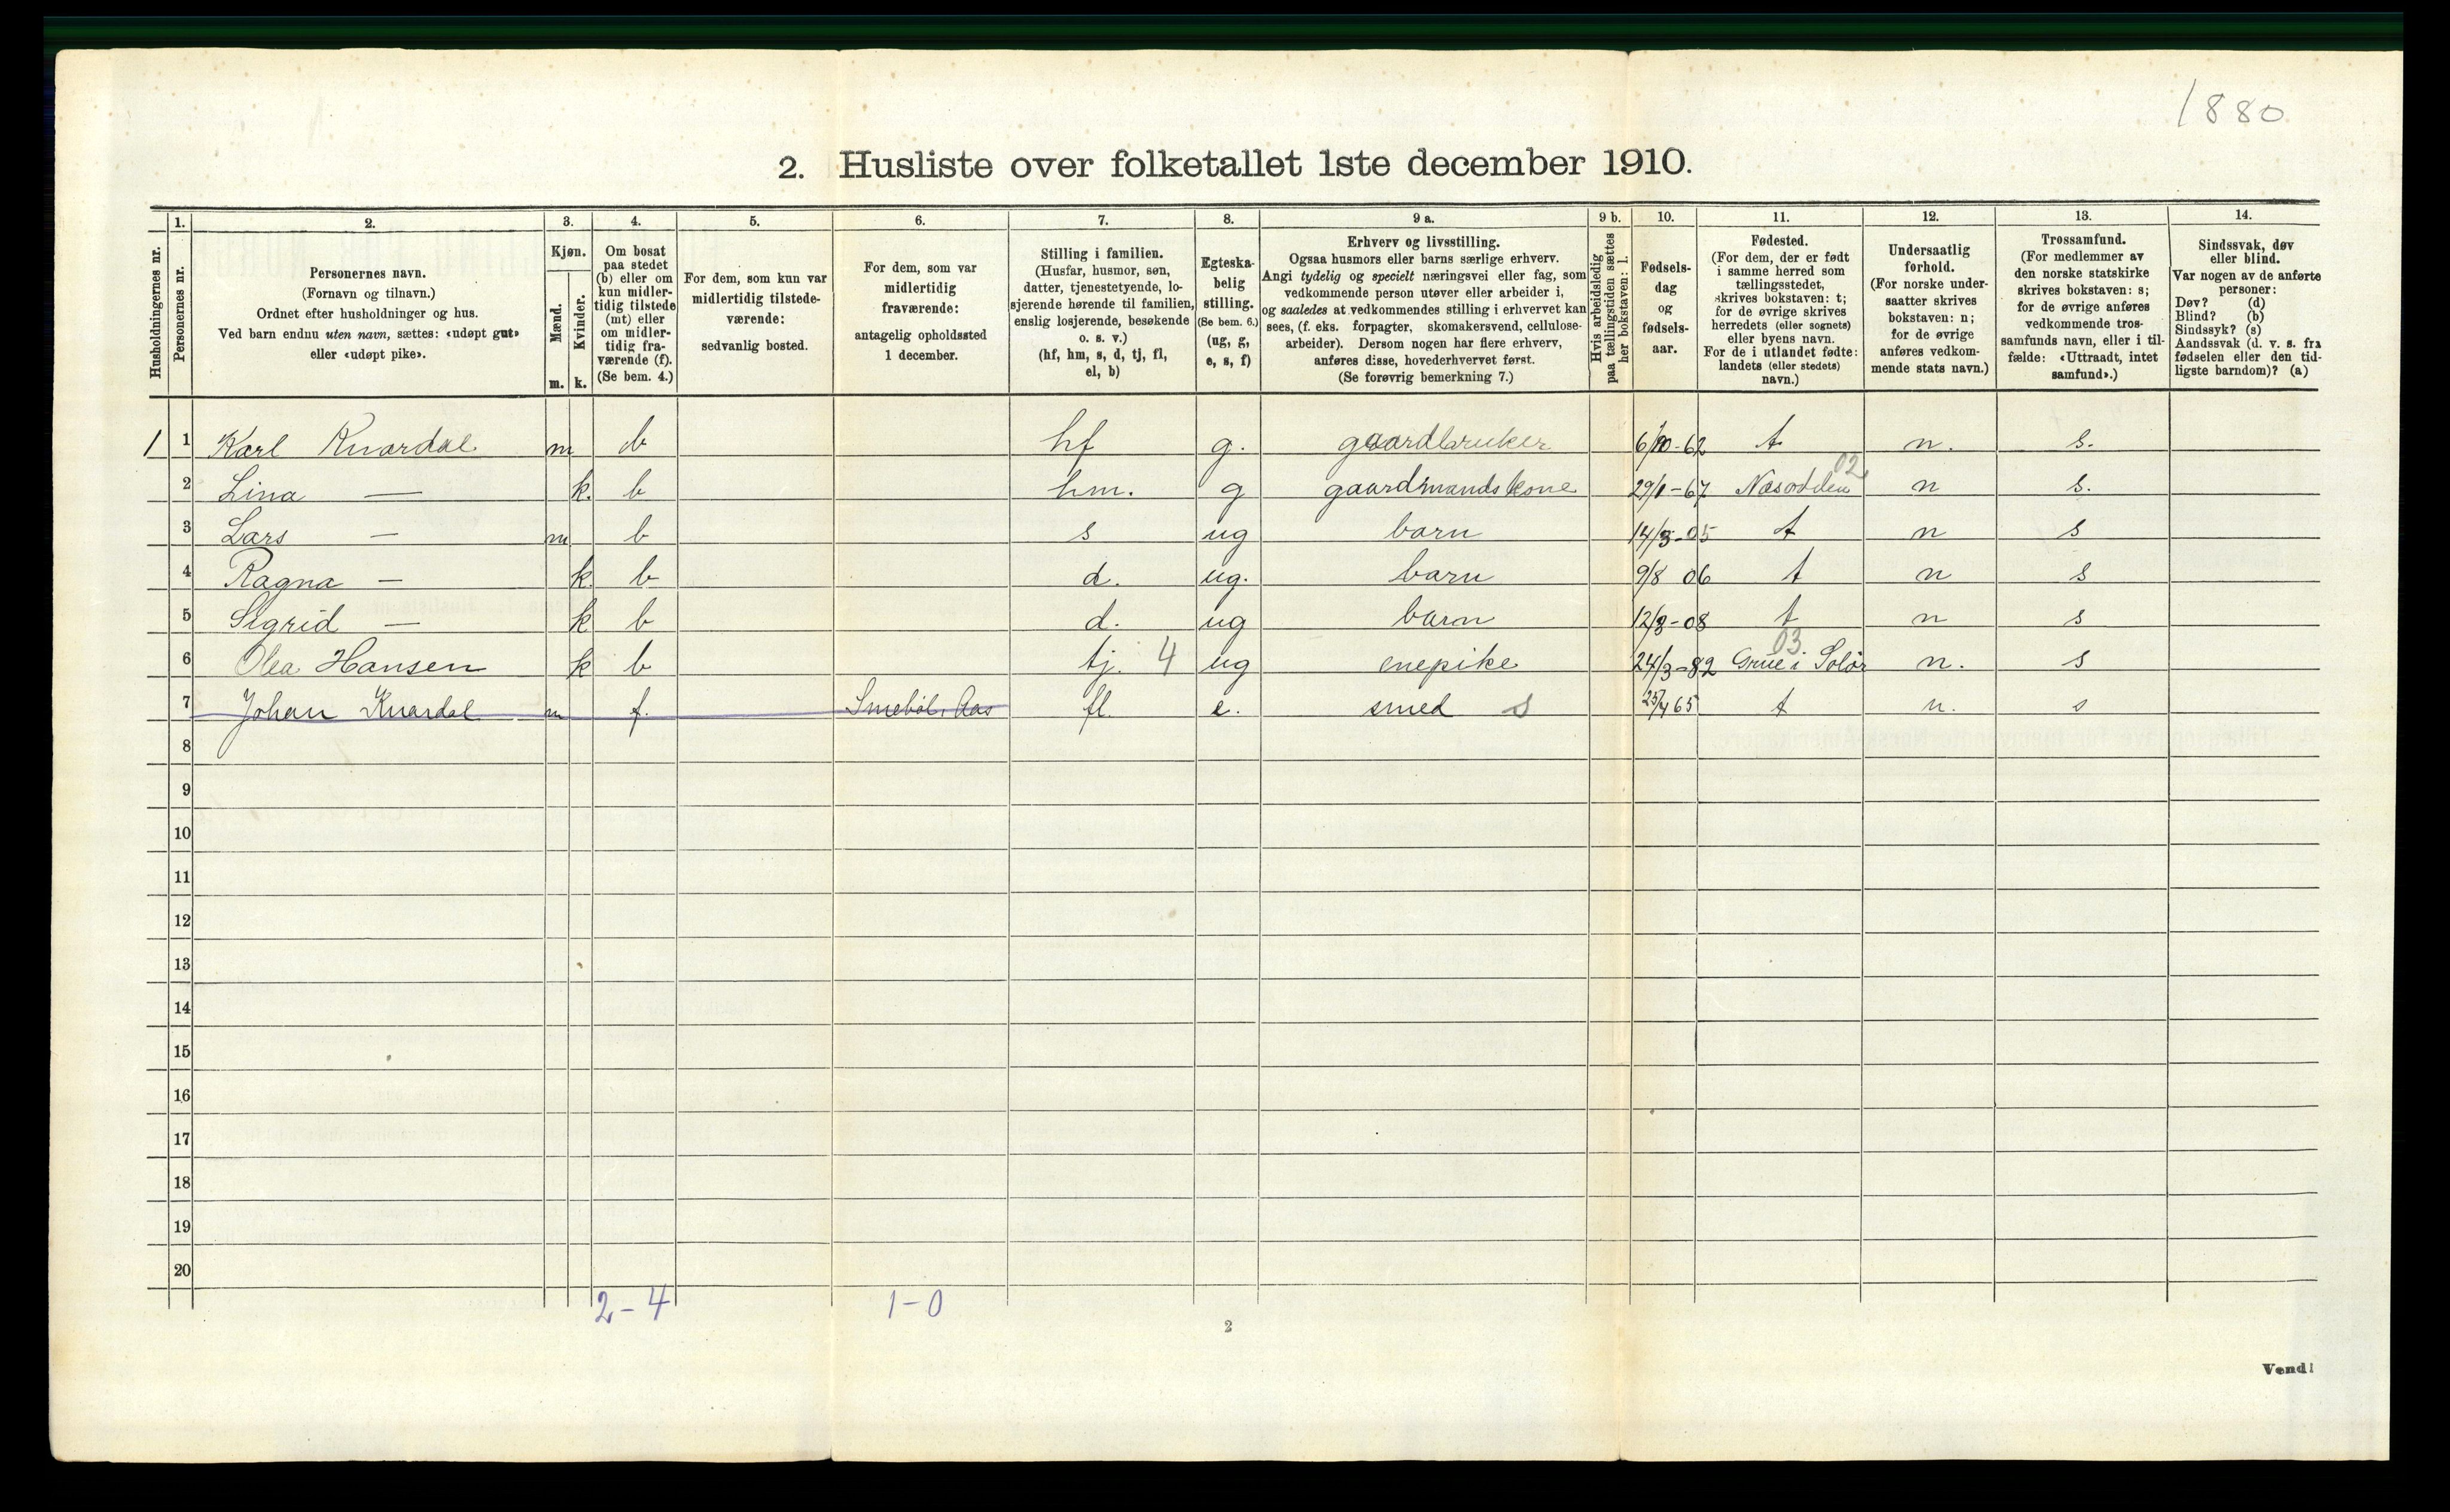 1880
2. Husliste over folketallet 1ste december 1910.
Husholdningernes nr.
1.
Personernes nr.
2.
Personernes navn.
(Fornavn og tilnavn.)
Ordnet efter husholdninger og hus.
Ved barn endnu uten navn, sættes: «udøpt gut»
eller «udøpt pike».
3.
Kjøn.
Mænd.
Kvinder.
m. k.
4.
Om bosat
paa stedet
(b) eller om
kun midler-
tidig tilstede
(mt) eller
om midler-
tidig fra-
værende (f).
(Se bem. 4.)
5.
For dem, som kun var
midlertidig tilstede-
værende:
sedvanlig bosted.
6.
For dem, som var
midlertidig
fraværende:
antagelig opholdssted
1 december.
7.
Stilling i familien.
(Husfar, husmor, søn,
datter, tjenestetyende, lo-
sjerende hørende til familien,
enslig losjerende, besøkende
o. s. v.)
(hf, hm, s, d, tj, fl,
el, b)
8.
Egteska-
belig
stilling.
(Se bem. 6.)
(ug, g,
e, s, f)
9 a.
Erhverv og livsstilling.
Ogsaa husmors eller barns særlige erhverv.
Angi tydelig og specielt næringsvei eller fag, som
vedkommende person utøver eller arbeider i,
og saaledes at vedkommendes stilling i erhvervet kan
sees, (f. eks. forpagter, skomakersvend, cellulose-
arbeider). Dersom nogen har flere erhverv,
anføres disse, hovederhvervet først.
(Se forøvrig bemerkning 7.)
9 b.
Hvis arbeidsledig
paa tællingstiden sættes
her bokstaven: l.
10.
Fødsels-
dag
og
fødsels-
aar.
11.
Fødested.
(For dem, der er født
i samme herred som
tællingsstedet,
skrives bokstaven: t;
for de øvrige skrives
herredets (eller sognets)
eller byens navn.
For de i utlandet fødte:
landets (eller stedets)
navn.)
12.
Undersaatlig
forhold.
(For norske under-
saatter skrives
bokstaven: n;
for de øvrige
anføres vedkom-
mende stats navn.)
13.
Trossamfund.
(For medlemmer av
den norske statskirke
skrives bokstaven: s;
for de øvrige anføres
vedkommende tros-
samfunds navn, eller i til-
fælde: «Uttraadt, intet
samfund».)
14.
Sindssvak, døv
eller blind.
Var nogen av de anførte
personer:
Døv? (d)
Blind? (b)
Sindssyk? (s)
Aandssvak (d. v. s. fra
fødselen eller den tid-
ligste barndom)? (a)
1 1 Karl Knardal m b hf g. gaardbruker 6/10-62 t n. s.
02
2 Lina — k. b hm. g gaardmandskone 29/1-67 Næsodden n s.
3 Lars — m b s ug barn 14/3-05 t n s
4 Ragna — k b d. ug. barn 9/8 06 t n s
5 Sigrid — k b d. ug barn 12/8-08 t n s
03
6 Olea Hansen k b tj. 4 ug enepike 24/3-82 Grue i Solør n. s
7 Johan Knardal m f. Smebøl, Aas fl. e. smed s 25/4 65 t n. s
8
9
10
11
12
13
14
15
16
17
18
19
20
2-4 1-0
2
Vend!